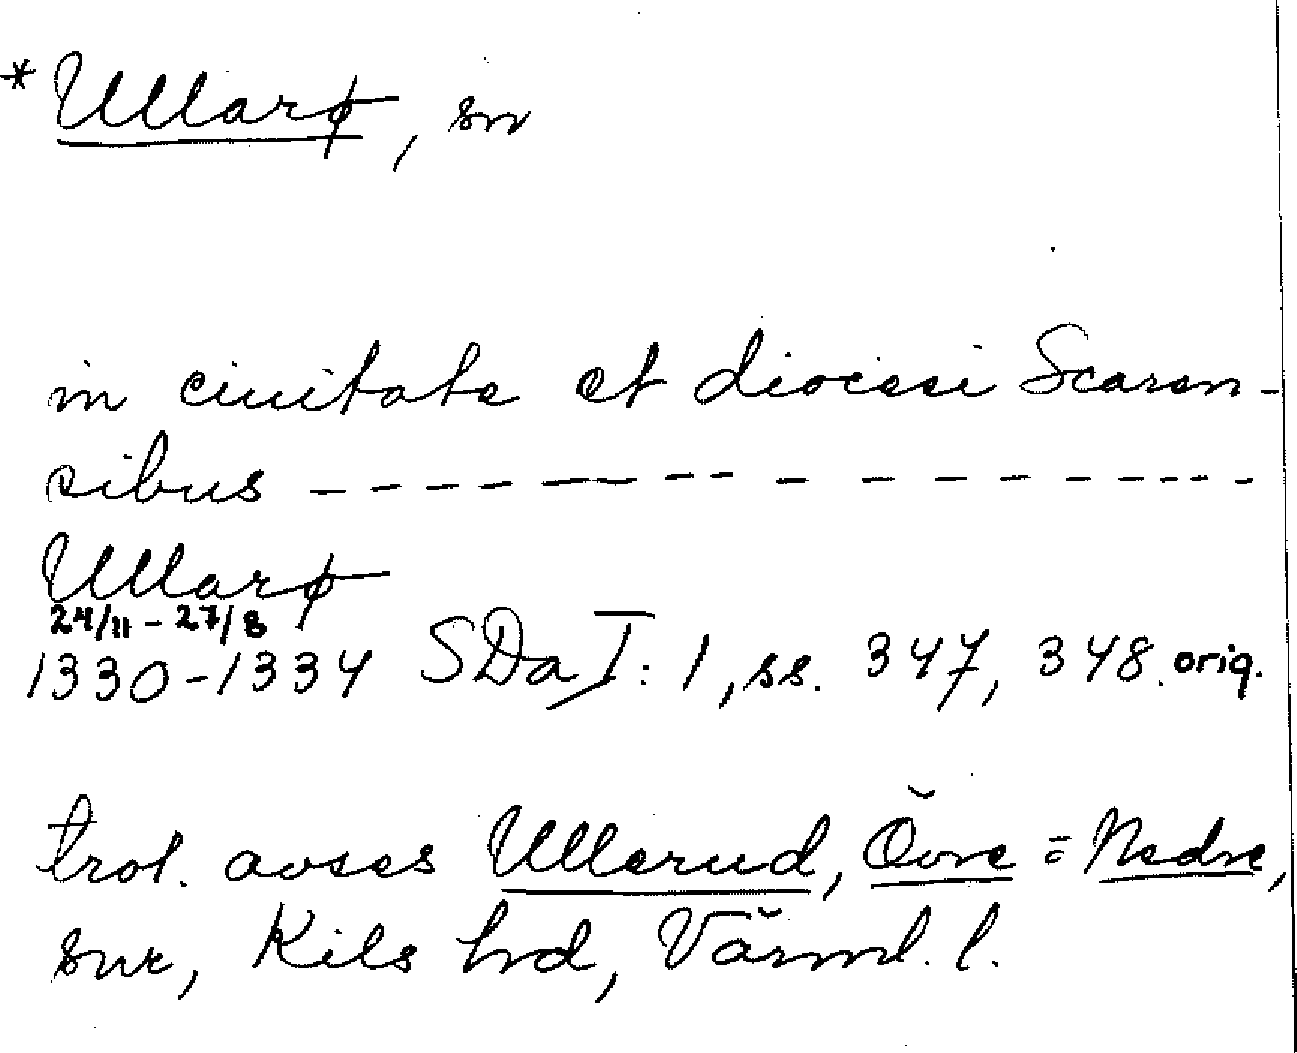 *Ullarꝑ, sn
in ciuitate et diocesi Scaren-
sibus – – – – – – – – – – – – – – – –
Ullarꝑ
24/11 – 27/8
1330–1334 SDa I: 1, ss. 347, 348. orig.
trol. avses Ullerud, Övre = Nedre,
snr, Kils hd, Värml. l.